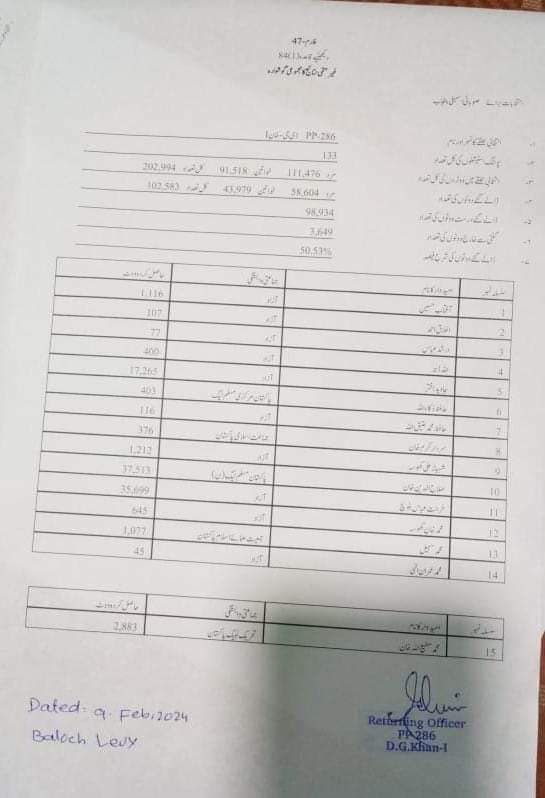 فارم-47
دیکھیے قاعدہ 84(1)
غیر حتمی نتائج کا مجموعی گوشوارہ
انتخابات برائے صوبائی اسمبلی پنجاب
انتخابی حلقے کا نمبر اور نام PP-286 ڈی جی-خان I
پولنگ اسٹیشنوں کی کل تعداد 133
انتخابی حلقے میں ووٹروں کی کل تعداد مرد 111,476 خواتین 91,518 کل تعداد 202,994
ڈالے گئے ووٹوں کی تعداد مرد 58,604 خواتین 43,979 کل تعداد 102,583
ڈالے گئے درست ووٹوں کی تعداد 98,934
گنتی سے خارج ووٹوں کی تعداد 3,649
ڈالے گئے ووٹوں کی شرح فیصد 50.53%
سلسلہ نمبر امیدوار کا نام جماعتی وابستگی حاصل کردہ ووٹ
1 آفتاب حسین آزاد 1,116
2 اخلاق احمد آزاد 107
3 ارشد عباس آزاد 77
4 اللہ ڈتہ آزاد 400
5 جاوید اختر آزاد 17,265
6 حافظ ذکاءاللہ پاکستان مرکزی مسلم لیگ 403
7 حافظ محمد عتیق اللہ آزاد 116
8 سردار کریم خان جماعت اسلامی پاکستان 376
9 شہباز علی کھوسہ آزاد 1,212
10 صلاح الدین خان پاکستان مسلم لیگ (ن) 37,513
11 فرحت عباس بلوچ آزاد 35,699
12 محمد خان کھوسہ آزاد 645
13 محمد سہیل جمعیت علمائے اسلام پاکستان 1,077
14 محمد عمران الٰہی آزاد 45
سلسلہ نمبر امیدوار کا نام جماعتی وابستگی حاصل کردہ ووٹ
15 محمد سمیع اللہ خان تحریک لبیک پاکستان 2,883
Dated: 9. Feb, 2024
Baloch Levy
Returning Officer
PP-286
D.G.Khan-I